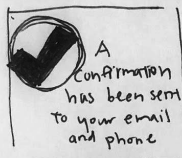 A
Confirmation
has been sent
to your email
and phone